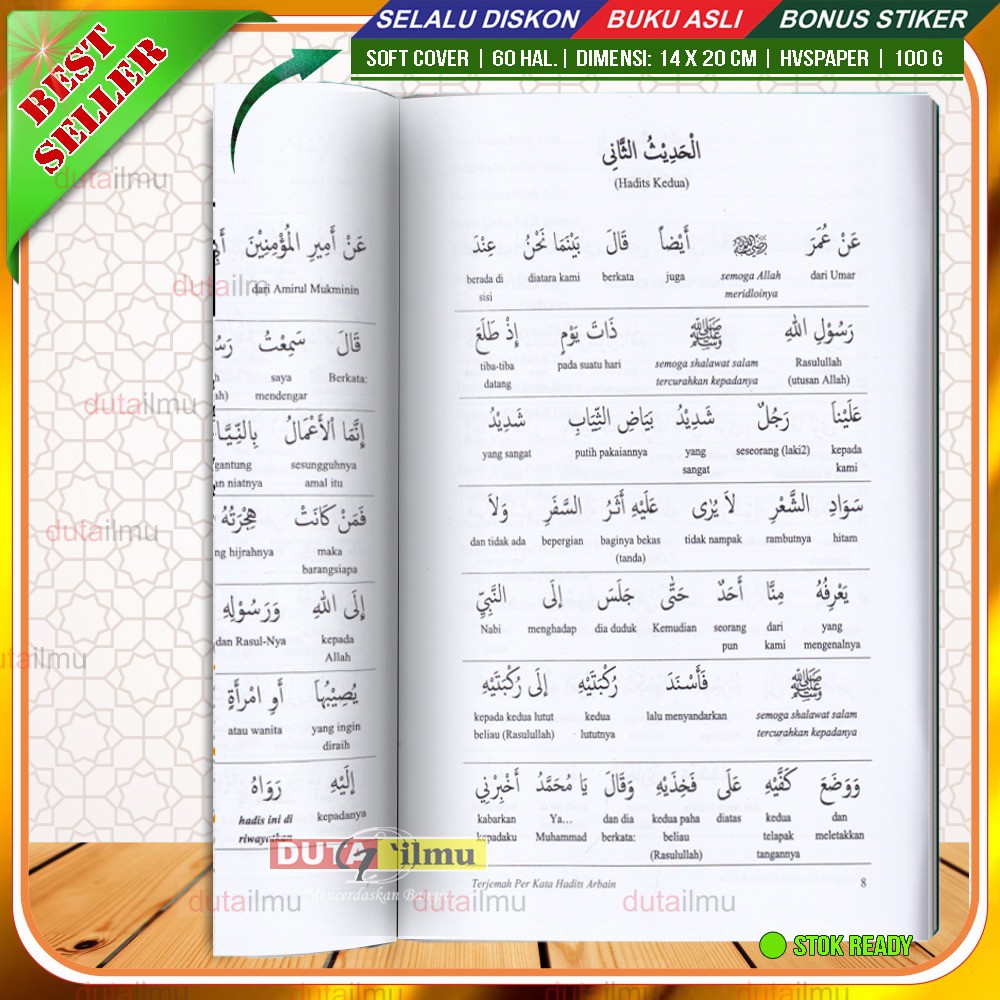 SELALU DISKON BUKU ASLI BONUS STIKER
SOFT COVER | 60 HAL. | DIMENSI: 14 X 20 CM | HVSPAPER | 100 G
BEST
SELLER
عَنْ أَمِيرِ الْمُؤْمِنِيْنَ
dari Amirul Mukminin
قَالَ سَمِعْتُ
Berkata: saya
mendengar
إِنَّمَا الْأَعْمَالُ
sesungguhnya
amal itu
فَمَنْ كَانَتْ هِجْرَتُهُ
maka
barangsiapa
إِلَى اللهِ وَرَسُوْلِهِ
kepada dan Rasul-Nya
Allah
يُصِيْبُهَا أَوِ امْرَأَةٍ
yang ingin atau wanita
diraih
إِلَيْهِ رَوَاهُ
kepadanya hadis ini di
الْحَدِيْثُ الثَّانِى
(Hadits Kedua)
عَنْ عُمَرَ أَيْضاً قَالَ بَيْنَمَا نَحْنُ عِنْدَ
dari Umar semoga Allah juga berkata diatara kami berada di
meridloinya sisi
رَسُوْلِ اللهِ ﷺ ذَاتَ يَوْمٍ إِذْ طَلَعَ
Rasulullah semoga shalawat salam pada suatu hari tiba-tiba
(utusan Allah) tercurahkan kepadanya datang
عَلَيْناَ رَجُلٌ شَدِيْدُ بَيَاضِ الثِّيَابِ شَدِيْدُ
kepada seseorang (laki2) yang putih pakaiannya yang sangat
kami sangat
سَوَادِ الشَّعْرِ لاَ يُرَى عَلَيْهِ أَثَرُ السَّفَرِ وَلاَ
hitam rambutnya tidak nampak baginya bekas bepergian dan tidak ada
(tanda)
يَعْرِفُهُ مِنَّا أَحَدٌ حَتَّى جَلَسَ إِلَى النَّبِيِّ
yang dari seorang Kemudian dia duduk menghadap Nabi
mengenalnya kami pun
ﷺ فَأَسْنَدَ رُكْبَتَيْهِ إِلَى رُكْبَتَيْهِ
semoga shalawat salam lalu menyandarkan kedua kepada kedua lutut
tercurahkan kepadanya lututnya beliau (Rasulullah)
وَوَضَعَ كَفَّيْهِ عَلَى فَخِذَيْهِ وَقَالَ يَا مُحَمَّدُ أَخْبِرْنِي
dan kedua diatas kedua paha dan dia Ya... kabarkan
meletakkan telapak beliau berkata: Muhammad kepadaku
tangannya (Rasulullah)
Terjemah Per Kata Hadits Arbain 8
DUTA ilmu
Mencerdaskan Bangsa
STOK READY
dutailmu
dutailmu
dutailmu
dutailmu
dutailmu
dutailmu
dutailmu
dutailmu